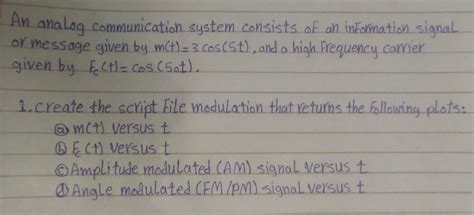 An analog communication system consists of an information signal
or message given by m(t)= 3 cos(5t), and a high Frequency carrier
given by Fc(t)= cos(50t).
1. create the script File modulation that returns the Following plots:
ⓐ m(t) versus t
ⓑ Fc(t) versus t
ⓒ Amplitude modulated (AM) signal versus t
ⓓ Angle modulated (FM/PM) signal versus t